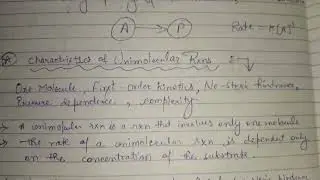 A → P Rate = K[A]¹
* Characteristics of Unimolecular Rxns
One Molecule, First-order kinetics, No-steric hindrance,
Pressure dependence, complexity
→ A unimolecular rxn is a rxn that involves only one molecule
→ The rate of a unimolecular rxn is dependent only
on the concentration of the substrate.